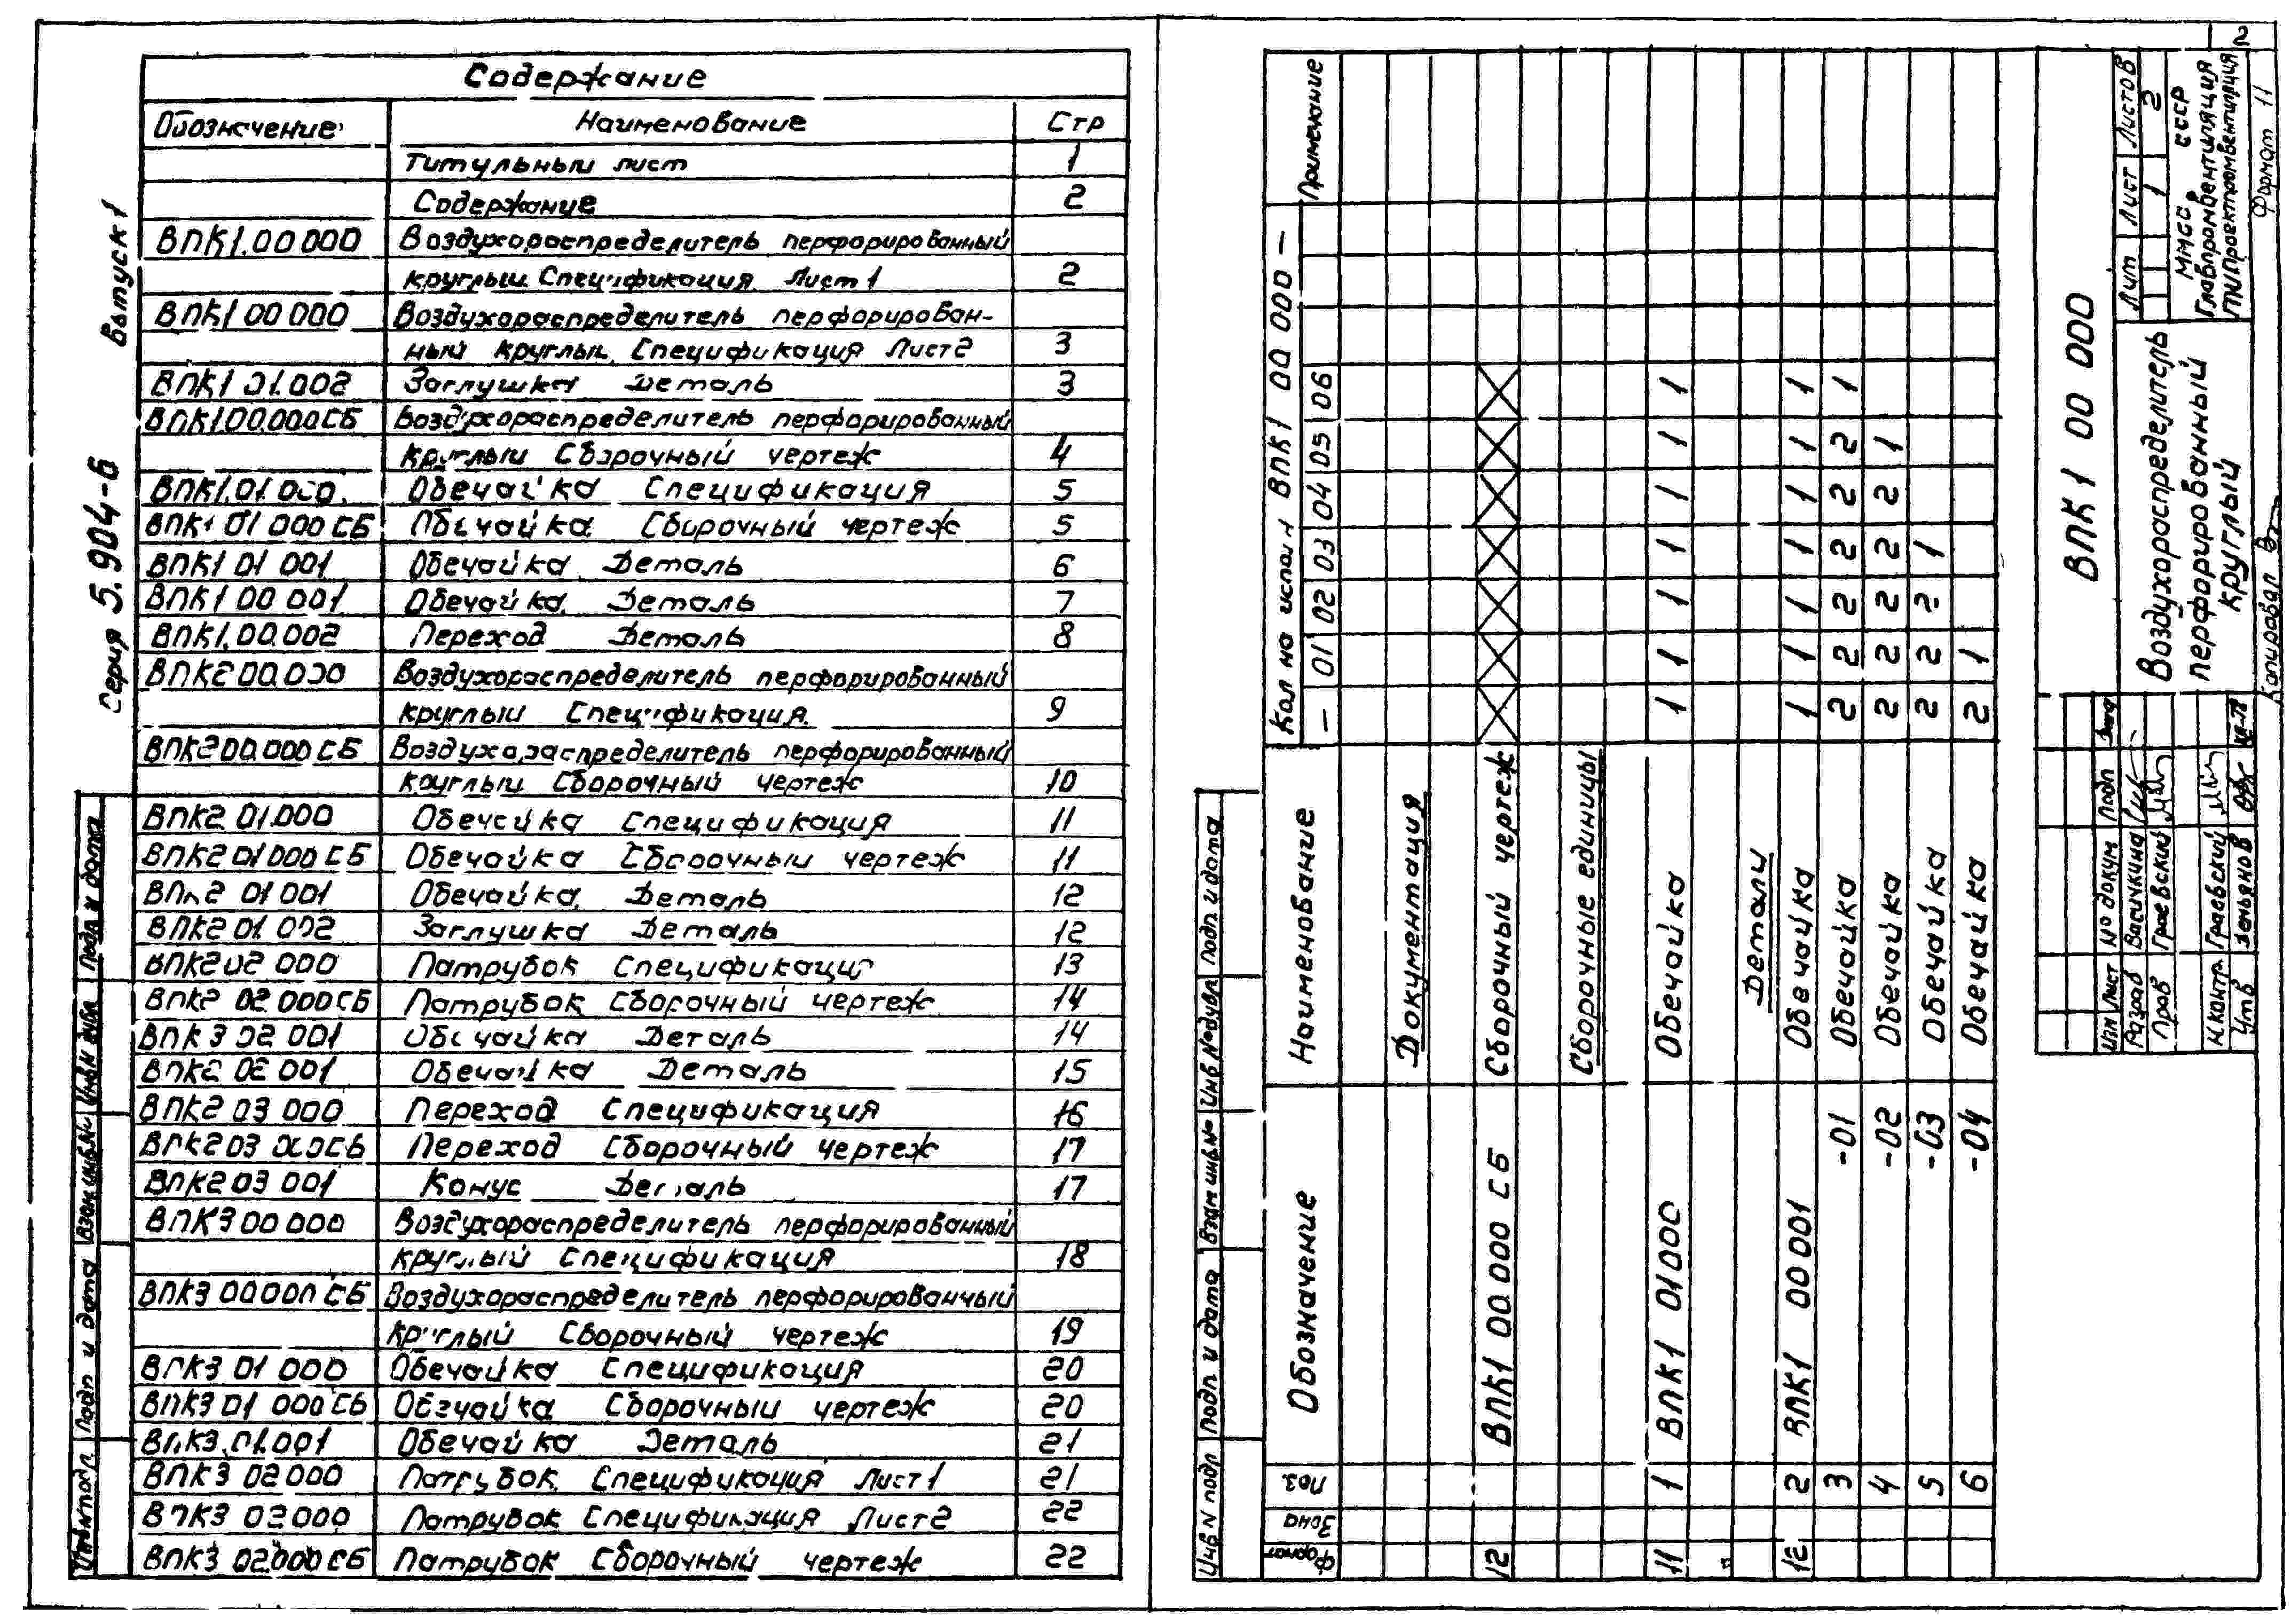 Серия 5.904-6 Выпуск 1
Содержание
Обозначение Наименование Стр
Титульный лист 1
Содержание 2
ВПК1.00000 Воздухораспределитель перфорированный
круглый. Спецификация. Лист 1 2
ВПК1 00 000 Воздухораспределитель перфорирован-
ный круглый. Спецификация Лист 2 3
ВПК1 01.002 Заглушка Деталь 3
ВПК1.00.000СБ Воздухораспределитель перфорированный
круглый Сборочный чертеж 4
ВПК1.01.000. Обечайка Спецификация 5
ВПК1 01 000 СБ Обечайка. Сборочный чертеж 5
ВПК1 01 001 Обечайка. Деталь 6
ВПК1 00 001 Обечайка. Деталь 7
ВПК1.00.002 Переход Деталь 8
ВПК2 00.000 Воздухораспределитель перфорированный
круглый Спецификация. 9
ВПК2 00.000 СБ Воздухораспределитель перфорированный
круглый Сборочный чертеж 10
ВПК2 01.000 Обечайка Спецификация 11
ВПК2 01 000 СБ Обечайка Сборочный чертеж 11
ВПК2 01 001 Обечайка. Деталь 12
ВПК2 01.002 Заглушка Деталь 12
ВПК2 02 000 Патрубок Спецификация 13
ВПК2 02.000 СБ Патрубок Сборочный чертеж 14
ВПК3 02 001 Обечайка Деталь 14
ВПК2 02 001 Обечайка Деталь 15
ВПК2 03 000 Переход Спецификация 16
ВПК2 03 000СБ Переход Сборочный чертеж 17
ВПК2 03 001 Конус Деталь 17
ВПК3 00 000 Воздухораспределитель перфорированный
круглый Спецификация 18
ВПК3 00.000 СБ Воздухораспределитель перфорированный
круглый Сборочный чертеж 19
ВПК3 01 000 Обечайка Спецификация 20
ВПК3 01 000 СБ Обечайка Сборочный чертеж 20
ВПК3.01.001 Обечайка Деталь 21
ВПК3 02.000 Патрубок. Спецификация Лист 1 21
ВПК3 02.000 Патрубок Спецификация Лист 2 22
ВПК3 02.000 СБ Патрубок Сборочный чертеж 22
Инв N подл Подп и дата Взам инв.№ Инв № дубл Подп и дата
2
Инв N подл Подп и дата Взам инв.№ Инв № дубл Подп и дата
Формат Зона Поз. Обозначение Наименование Кол на исполн ВПК1 00 000 — Примечание
— 01 02 03 04 05 06
Документация
12 ВПК1 00.000 СБ Сборочный чертеж
Сборочные единицы
11 1 ВПК1 01000 Обечайка 1 1 1 1 1 1 1
Детали
12 2 ВПК1 00 001 Обечайка 1 1 1 1 1 1 1
3 -01 Обечайка 2 2 2 2 2 2 1
4 -02 Обечайка 2 2 2 2 2 1
5 -03 Обечайка 2 2 2 1
6 -04 Обечайка 2 1
ВПК1 00 000
Изм Лист № докум Подп Дата
Разраб Васичкина
Пров Граевский
Н.контр. Граевский
Утв Земьянов
Воздухораспределитель
перфорированный
круглый
Лит Лист Листов
1 2
ММСС СССР
Главпромвентиляция
ПКИ Проектпромвентиляция
Копировал
Формат 11